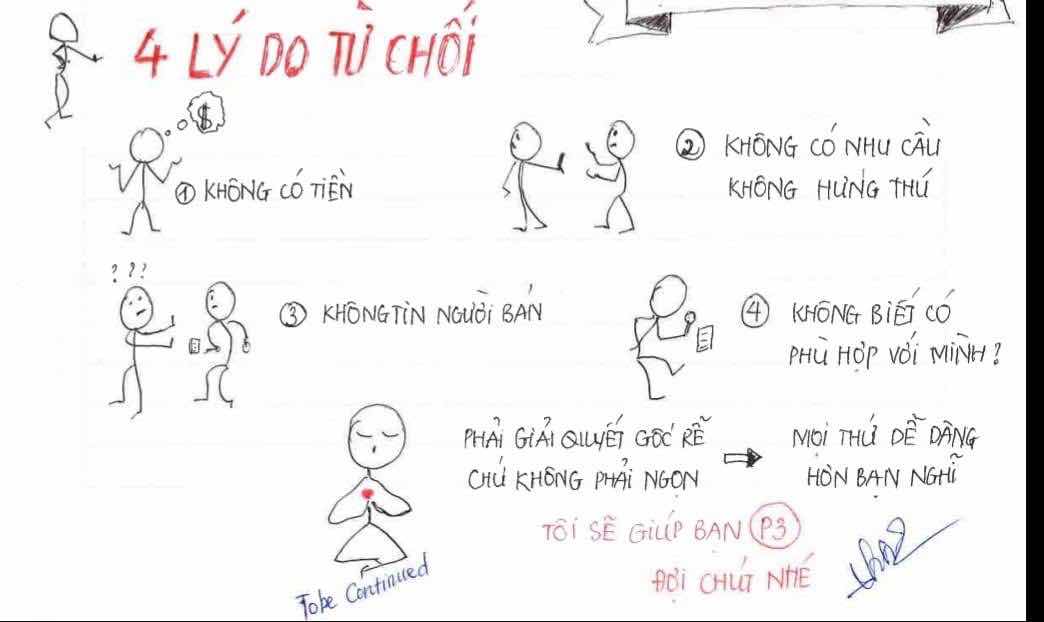 4 LÝ DO TỪ CHỐI
$
① KHÔNG CÓ TIỀN
② KHÔNG CÓ NHU CẦU
KHÔNG HỨNG THÚ
? ? ?
③ KHÔNG TIN NGƯỜI BÁN
④ KHÔNG BIẾT CÓ
PHÙ HỢP VỚI MÌNH?
PHẢI GIẢI QUYẾT GỐC RỄ
CHỨ KHÔNG PHẢI NGỌN
MỌI THỨ DỄ DÀNG
HƠN BẠN NGHĨ
TÔI SẼ GIÚP BẠN P3
ĐỢI CHÚT NHÉ
To be Continued